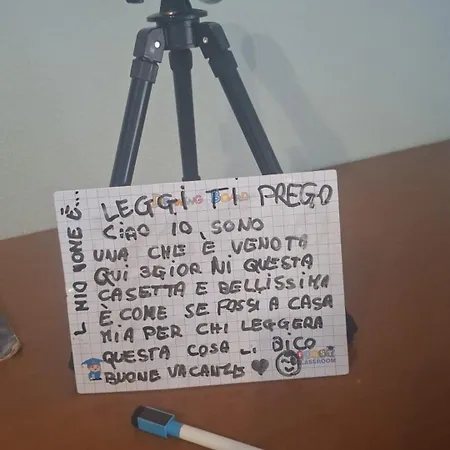 LEGGI TI PREGO
CIAO IO SONO
UNA CHE E VENOTA
QUI 3GIORNI QUESTA
CASETTA E BELLISSIMA
È COME SE FOSSI A CASA
MIA PER CHI LEGGERA
QUESTA COSA LI DICO
BUONE VACANZE
L MIO NOME È...
BOARD
CLASSROOM